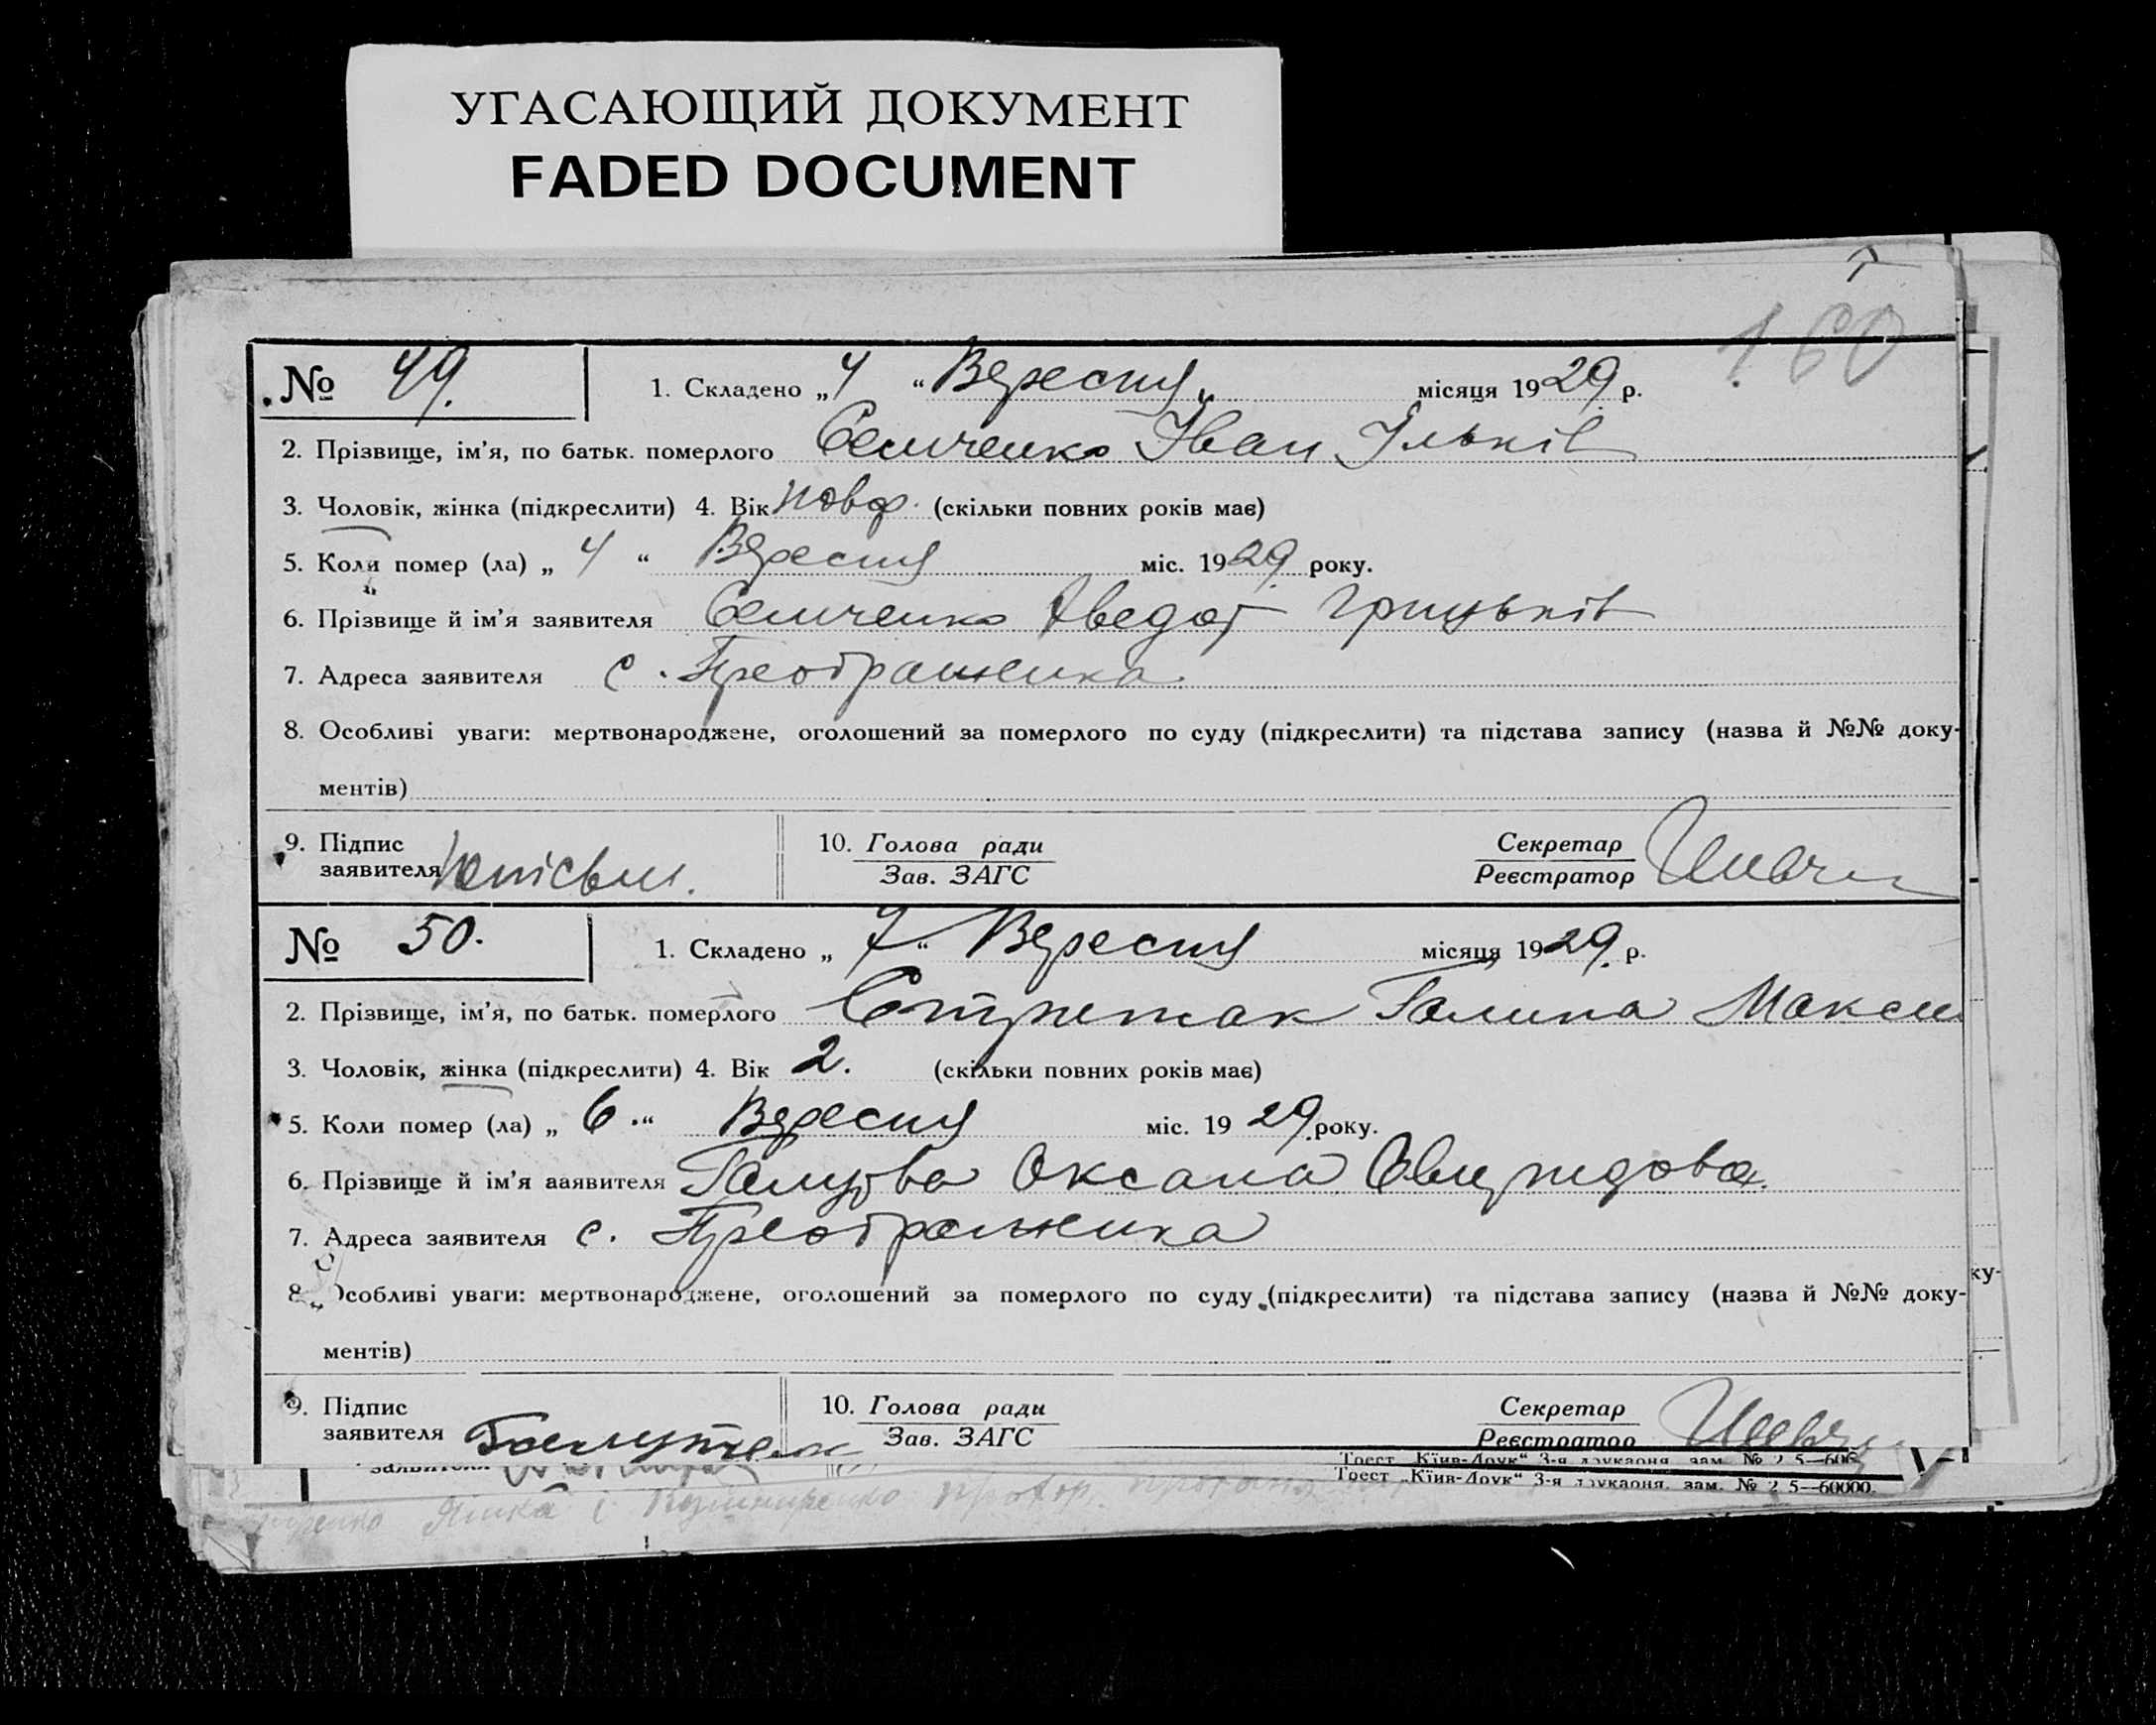 УГАСАЮЩИЙ ДОКУМЕНТ
FADED DOCUMENT
160
№ 49. 1. Складено „4“ Вересня місяця 1929 р.
2. Прізвище, ім'я, по батьк. померлого Семченко Іван Ільків
3. Чоловік, жінка (підкреслити) 4. Вік новор. (скільки повних років має)
5. Коли помер (ла) „4“ Вересня міс. 1929 року.
6. Прізвище й ім'я заявителя Семченко Яведот Грицьків
7. Адреса заявителя с. Преображенка
8. Особливі уваги: мертвонароджене, оголошений за померлого по суду (підкреслити) та підстава запису (назва й №№ доку-
ментів)
9. Підпис заявителя 10. Голова ради Зав. ЗАГС Секретар Реєстратор
№ 50. 1. Складено „7“ Вересня місяця 1929 р.
2. Прізвище, ім'я, по батьк. померлого Галина Макси
3. Чоловік, жінка (підкреслити) 4. Вік 2. (скільки повних років має)
5. Коли помер (ла) „6“ Вересня міс. 1929 року.
6. Прізвище й ім'я заявителя Оксана
7. Адреса заявителя с. Преображенка
8. Особливі уваги: мертвонароджене, оголошений за померлого по суду (підкреслити) та підстава запису (назва й №№ доку-
ментів)
9. Підпис заявителя 10. Голова ради Зав. ЗАГС Секретар Реєстратор
Трест „Київ-Друк“ 3-я друкарня, зам. № 25—606
Трест „Київ-Друк“ 3-я друкарня, зам. № 25—60000.